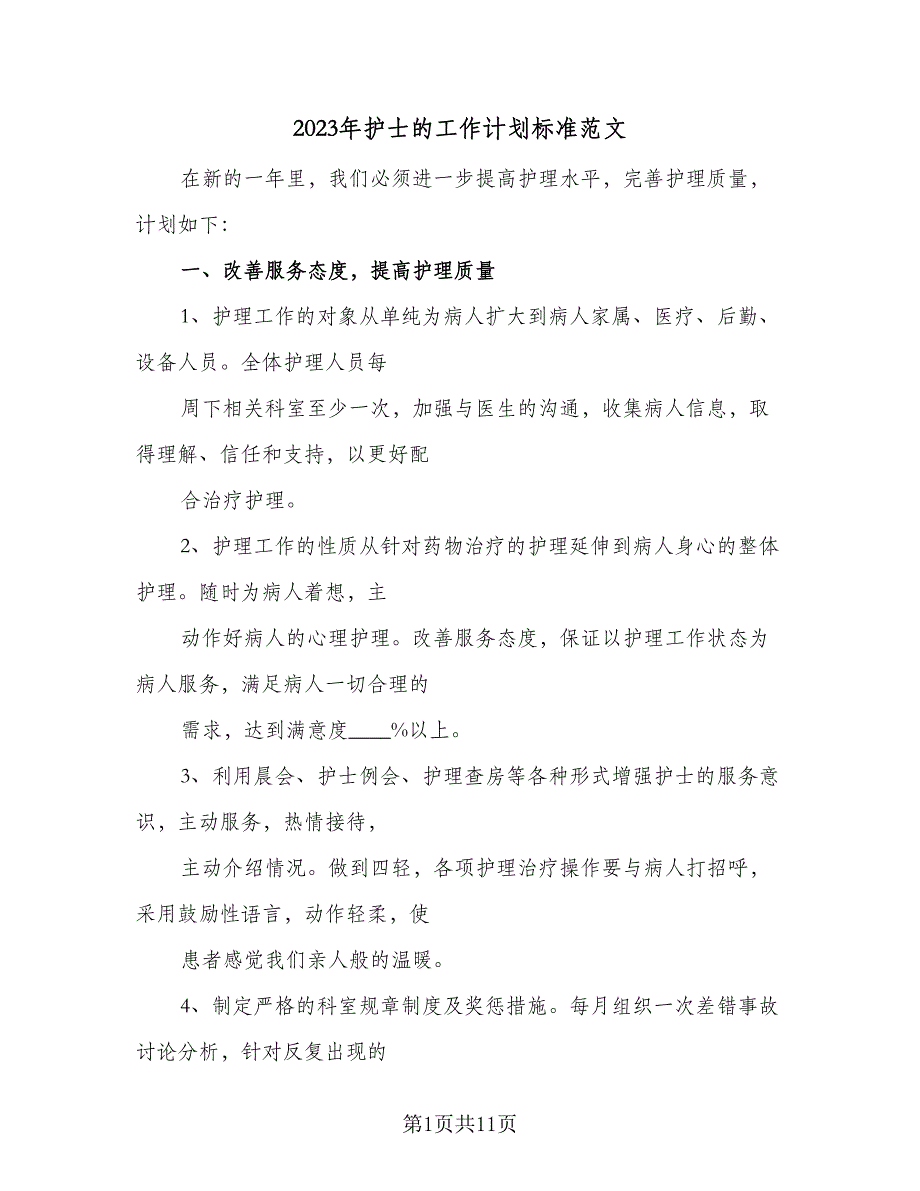 2023年护士的工作计划标准范文
在新的一年里，我们必须进一步提高护理水平，完善护理质量，
计划如下：
一、改善服务态度，提高护理质量
1、护理工作的对象从单纯为病人扩大到病人家属、医疗、后勤、
设备人员。全体护理人员每
周下相关科室至少一次，加强与医生的沟通，收集病人信息，取
得理解、信任和支持，以更好配
合治疗护理。
2、护理工作的性质从针对药物治疗的护理延伸到病人身心的整体
护理。随时为病人着想，主
动作好病人的心理护理。改善服务态度，保证以护理工作状态为
病人服务，满足病人一切合理的
需求，达到满意度____%以上。
3、利用晨会、护士例会、护理查房等各种形式增强护士的服务意
识，主动服务，热情接待，
主动介绍情况。做到四轻，各项护理治疗操作要与病人打招呼，
采用鼓励性语言，动作轻柔，使
患者感觉我们亲人般的温暖。
4、制定严格的科室规章制度及奖惩措施。每月组织一次差错事故
讨论分析，针对反复出现的
第1页共11页